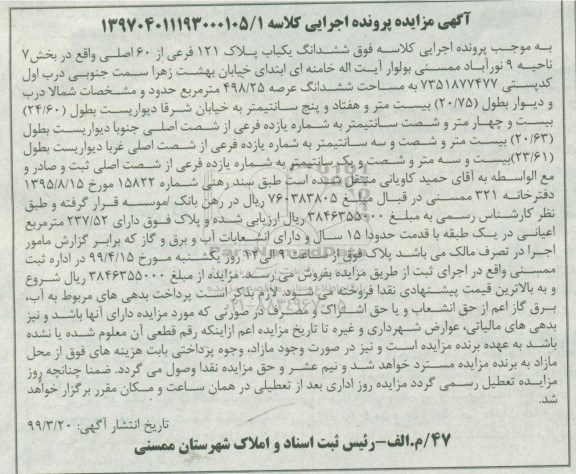 آگهی مزایده پرونده اجرایی کلاسه ۱۳۹۷۰۴۰۱۱۱۹۳۰۰۰۱۰۵/۱
به موجب پرونده اجرایی کلاسه فوق ششدانگ یکباب پلاک ۱۲۱ فرعی از ۶۰ اصلی واقع در بخش۷
ناحیه ۹ نورآباد ممسنی بولوار آیت اله خامنه ای ابتدای خیابان بهشت زهرا سمت جنوبی درب اول
کدپستی ۷۳۵۱۸۷۷۴۷۷ به مساحت ششدانگ عرصه ۴۹۸/۲۵ مترمربع حدود و مشخصات شمالا درب
و دیوار بطول (۲۰/۷۵) بیست متر و هفتاد و پنج سانتیمتر به خیابان شرقا دیواریست بطول (۲۴/۶۰)
بیست و چهار متر و شصت سانتیمتر به شماره یازده فرعی از شصت اصلی جنوبا دیواریست بطول
(۲۰/۶۳) بیست متر و شصت و سه سانتیمتر به شماره یازده فرعی از شصت اصلی غربا دیواریست بطول
(۲۳/۶۱)بیست و سه متر و شصت و یک سانتیمتر به شماره یازده فرعی از شصت اصلی ثبت و صادر و
مع الواسطه به آقای حمید کاویانی منتقل شده است طبق سند رهنی شماره ۱۵۸۲۲ مورخ ۱۳۹۵/۸/۱۵
دفترخانه ۳۲۱ ممسنی در قبال مبلغ ۷۶۰۳۸۳۸۰۵ ریال در رهن بانک /موسسه قرار گرفته و طبق
نظر کارشناس رسمی به مبلغ ۳۸۴۶۳۵۵۰۰۰ ریال ارزیابی شده و پلاک فوق دارای ۲۳۷/۵۲ مترمربع
اعیانی در یک طبقه با قدمت حدودا ۱۵ سال و دارای انشعابات آب و برق و گاز که برابر گزارش مامور
اجرا در تصرف مالک می باشد پلاک فوق از ساعت ۹ الی ۱۲ روز یکشنبه مورخ ۹۹/۴/۱۵ در اداره ثبت
ممسنی واقع در اجرای ثبت از طریق مزایده بفروش می رسد. مزایده از مبلغ ۳۸۴۶۳۵۵۰۰۰ ریال شروع
و به بالاترین قیمت پیشنهادی نقدا فروخته می شود. لازم بذکر است پرداخت بدهی های مربوط به آب،
برق گاز اعم از حق انشعاب و یا حق اشتراک و مصرف در صورتی که مورد مزایده دارای آنها باشد و نیز
بدهی های مالیاتی، عوارض شهرداری و غیره تا تاریخ مزایده اعم ازاینکه رقم قطعی آن معلوم شده یا نشده
باشد به عهده برنده مزایده است و نیز در صورت وجود مازاد، وجوه پرداختی بابت هزینه های فوق از محل
مازاد به برنده مزایده مسترد خواهد شد و نیم عشر و حق مزایده نقدا وصول می گردد. ضمنا چنانچه روز
مزایده تعطیل رسمی گردد مزایده روز اداری بعد از تعطیلی در همان ساعت و مکان مقرر برگزار خواهد
شد.
تاریخ انتشار آگهی: ۹۹/۳/۲۰
۴۷/م.الف-رئیس ثبت اسناد و املاک شهرستان ممسنی